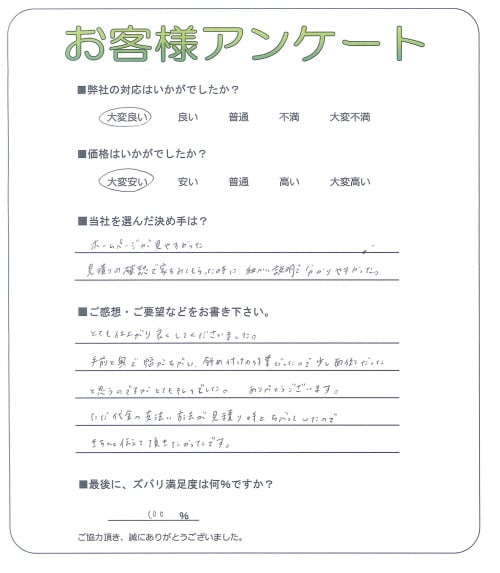 お客様アンケート
■弊社の対応はいかがでしたか？
大変良い 良い 普通 不満 大変不満
■価格はいかがでしたか？
大変安い 安い 普通 高い 大変高い
■当社を選んだ決め手は？
ホームページが見やすかった
見積りの確認で家をみてもらった時に 細かい説明で分かりやすかった。
■ご感想・ご要望などをお書き下さい。
とても仕上がり良くしてくださいました。
手前と奥で幅がちがい、斜め付けの作業だったので少し面倒だった
と思うのですがとてもキレイでした。 ありがとうございます。
ただ代金の支払い方法が見積り時とちがっていたので
きちんと伝えて頂きたかったです。
■最後に、ズバリ満足度は何％ですか？
100 %
ご協力頂き、誠にありがとうございました。